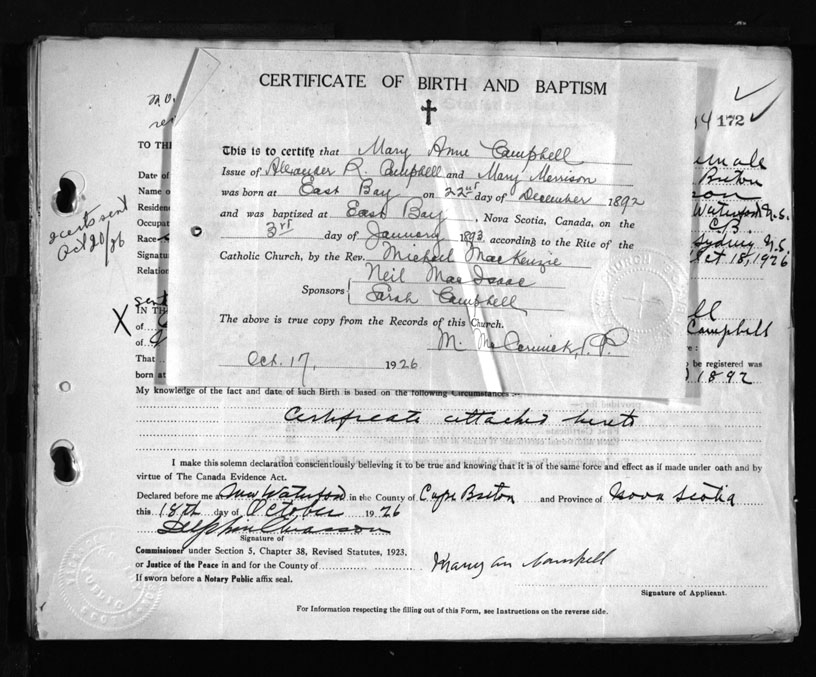 CERTIFICATE OF BIRTH AND BAPTISM
This is to certify that Mary Anne Campbell
Issue of Alexander R. Campbell and Mary Morrison
was born at East Bay on 22nd day of December 1892
and was baptized at East Bay, Nova Scotia, Canada, on the
3rd day of January 1893, according to the Rite of the
Catholic Church, by the Rev. Michael MacKenzie
Sponsors { Neil MacIsaac
Sarah Campbell
The above is true copy from the Records of this Church.
M. McCormick, P.P.
Oct. 17, 1926
172
TO TH
Date of
Name o
Residen
Occupat
Race
Signatu
Relation
2 certs sent
Oct 20/26
Waterford N.S.
C.B.
Sydney N.S.
Oct. 18, 1926
X
IN TH
of
of
That
born at
Campbell
be registered was
1892
My knowledge of the fact and date of such Birth is based on the following Circumstances :-
Certificate attached hereto
I make this solemn declaration conscientiously believing it to be true and knowing that it is of the same force and effect as if made under oath and by
virtue of The Canada Evidence Act.
Declared before me at New Waterford in the County of Cape Breton and Province of Nova Scotia
this 18th day of October 1926
Signature of
Commissioner under Section 5, Chapter 38, Revised Statutes, 1923,
or Justice of the Peace in and for the County of
If sworn before a Notary Public affix seal.
Mary an Campbell
Signature of Applicant.
For Information respecting the filling out of this Form, see Instructions on the reverse side.